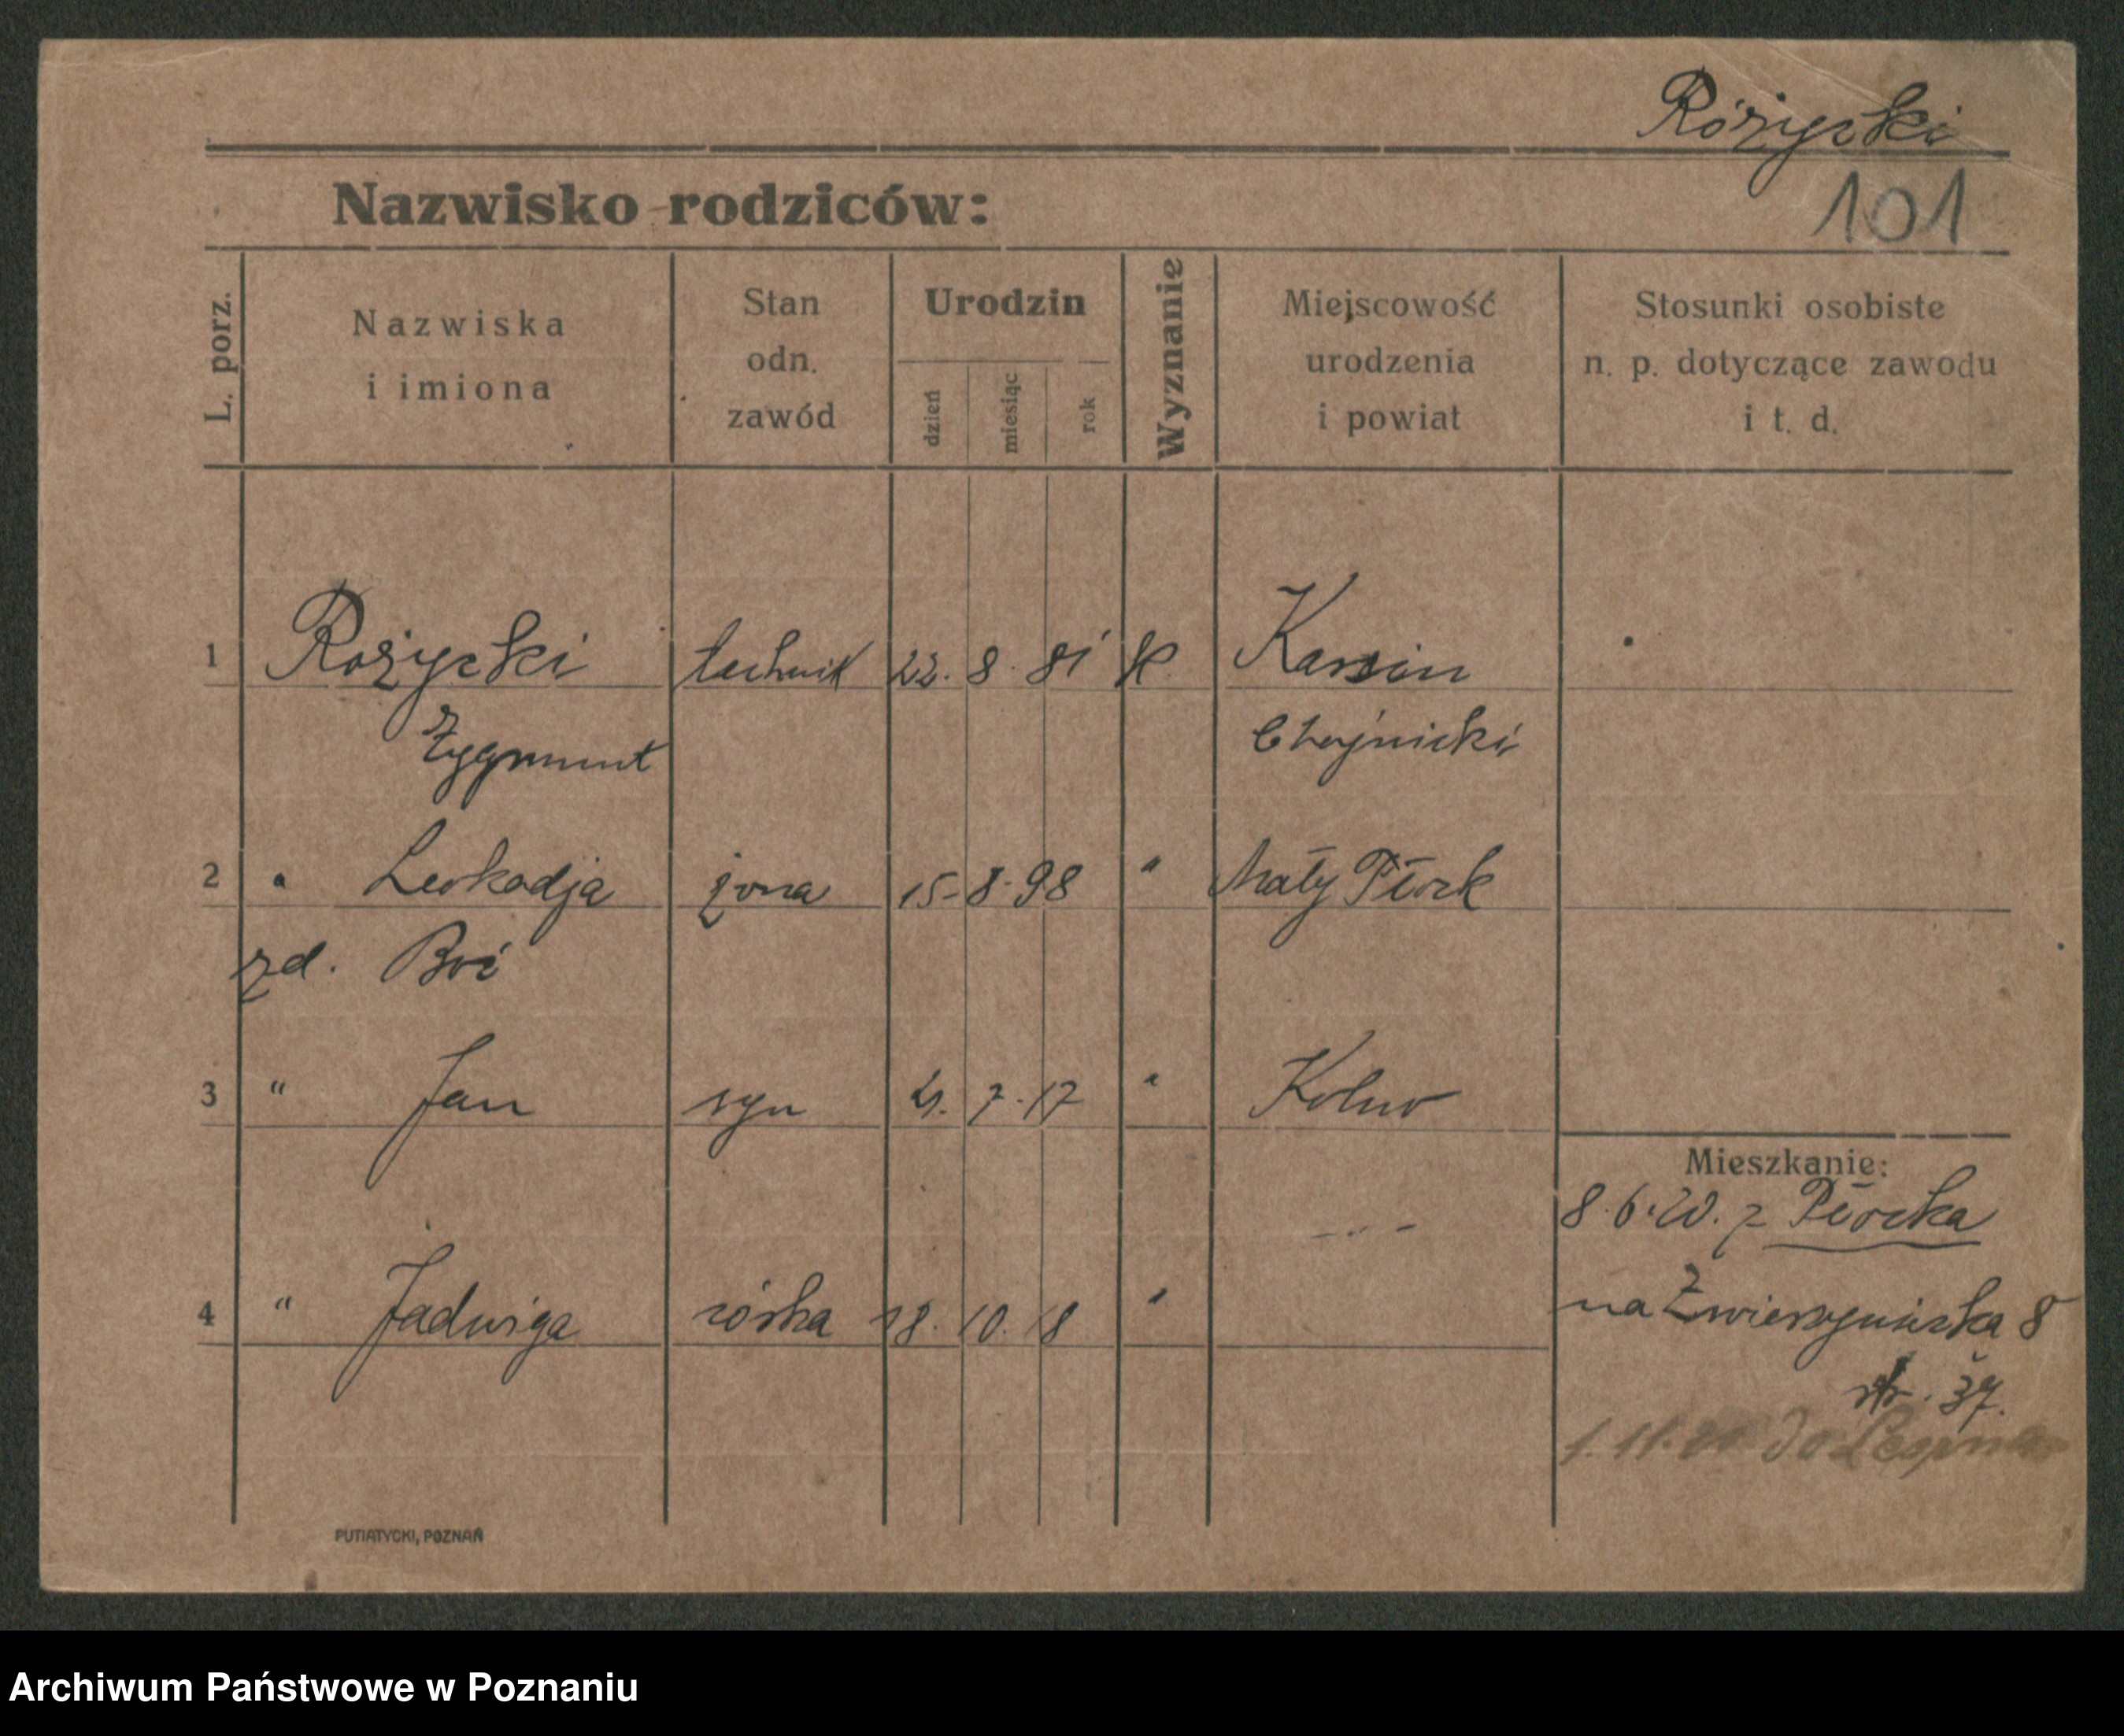 Różycki
101
Nazwisko rodziców:
L. porz.
Nazwiska
i imiona
Stan
odn.
zawód
Urodzin
dzień
miesiąc
rok
Wyznanie
Miejscowość
urodzenia
i powiat
Stosunki osobiste
n. p. dotyczące zawodu
i t. d.
1 Rożycki technik 22. 8. 81 K. Karsin
Zygmunt Chojnicki
2 " Leokadja żona 15. 8. 98 " Mały Płock
zd. Boć
3 " Jan syn 21. 7. 17 " Kolno
Mieszkanie:
8.6.20. z Płocka
4 " Jadwiga córka 18. 10. 18 "
na Zwierzyniecka 8
str. 37.
1.11.20 do
PUTIATYCKI, POZNAŃ
Archiwum Państwowe w Poznaniu